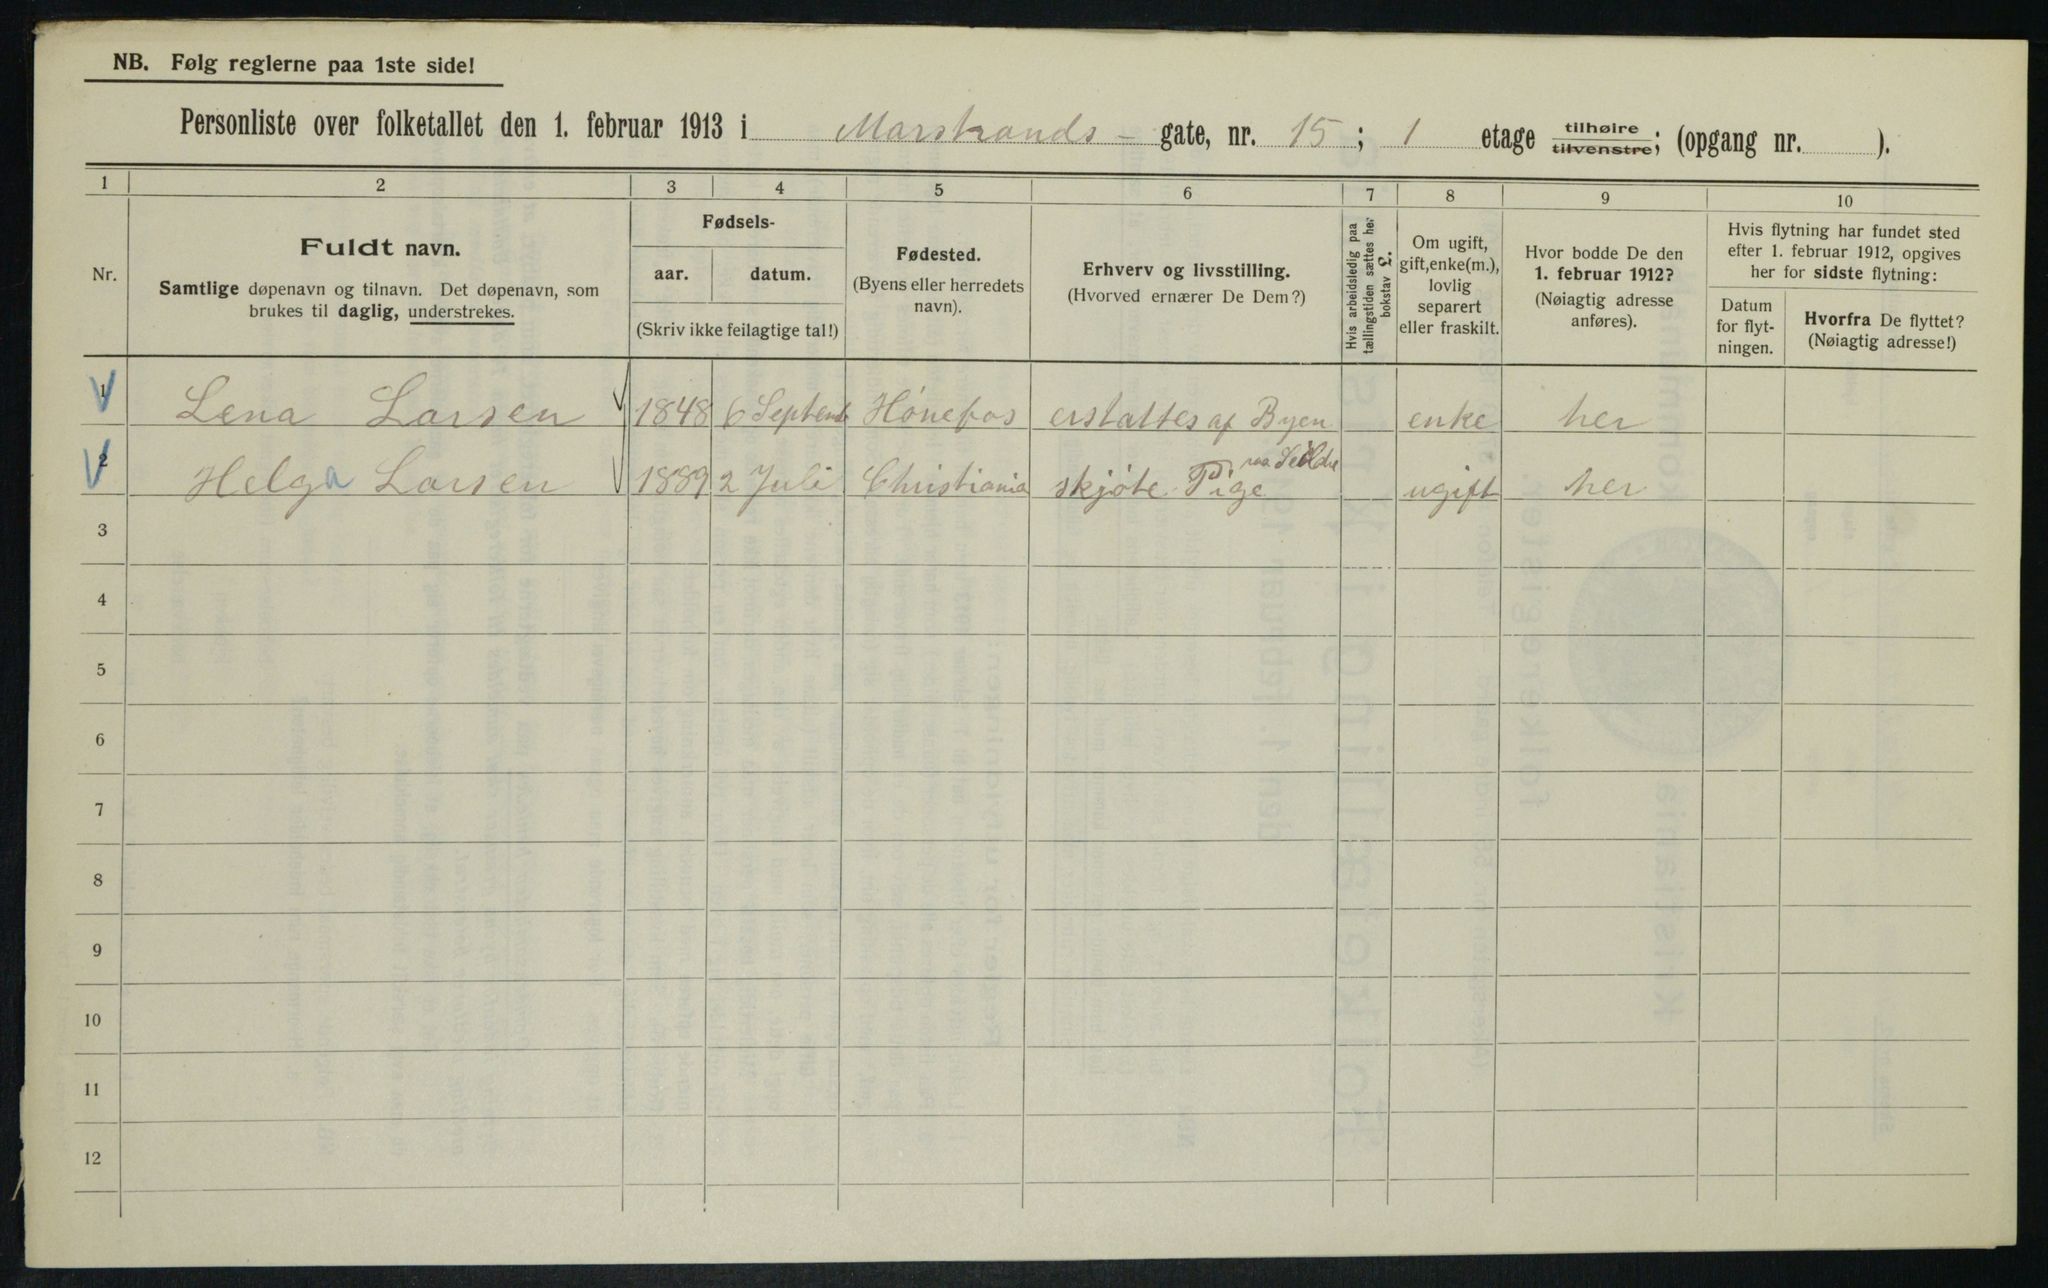 NB. Følg reglerne paa 1ste side!
Personliste over folketallet den 1. februar 1913 i Marstrands - gate, nr. 15 ; 1 etage tilhøire tilvenstre; (opgang nr. ).
1 2 3 4 5 6 7 8 9 10
Nr.
Fuldt navn.
Samtlige døpenavn og tilnavn. Det døpenavn, som
brukes til daglig, understrekes.
Fødsels-
aar. datum.
(Skriv ikke feilagtige tal!)
Fødested.
(Byens eller herredets
navn).
Erhverv og livsstilling.
(Hvorved ernærer De Dem?)
Hvis arbeidsledig paa
tællingstiden sættes her
bokstav L.
Om ugift,
gift, enke(m.),
lovlig
separert
eller fraskilt.
Hvor bodde De den
1. februar 1912?
(Nøiagtig adresse
anføres).
Hvis flytning har fundet sted
efter 1. februar 1912, opgives
her for sidste flytning:
Datum
for flyt-
ningen.
Hvorfra De flyttet?
(Nøiagtig adresse!)
1 Lena Larsen 1848 6 Septemb Hónefos erstattes af Byen enke her
2 Helga Larsen 1889 2 Juli Christiania skjóte Pige ugift her
3
4
5
6
7
8
9
10
11
12